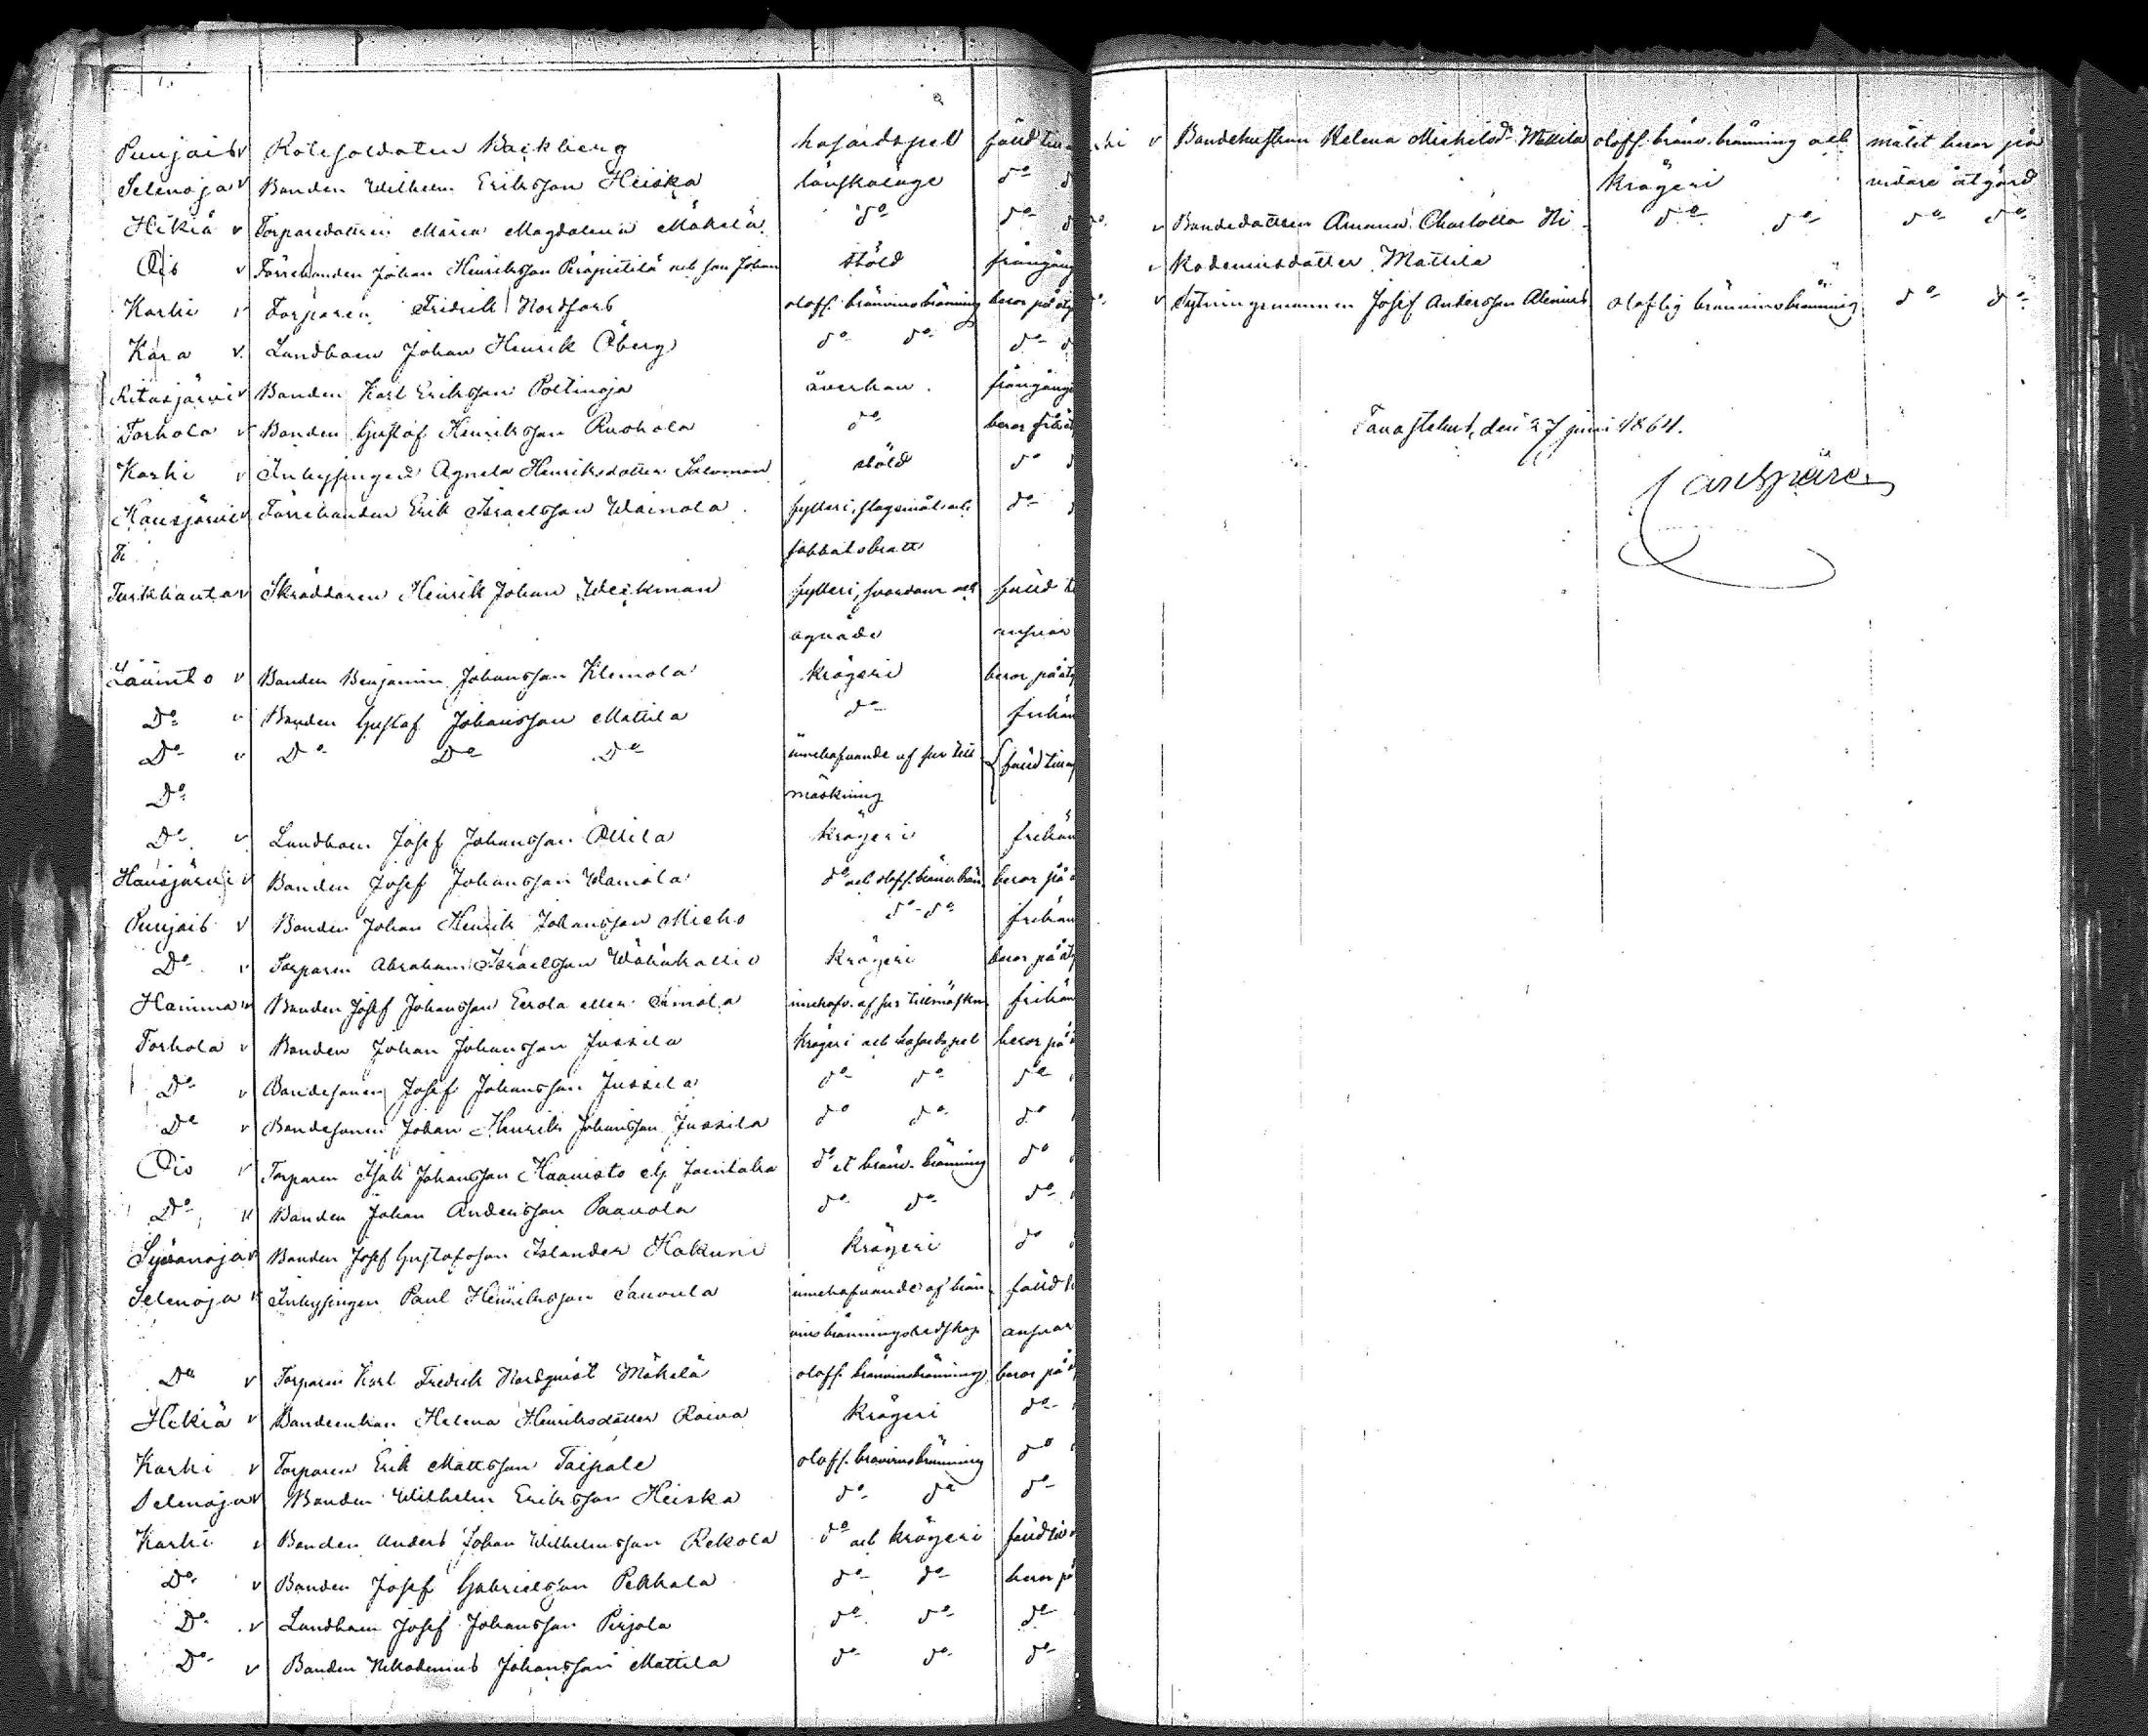 Punjais v Rotesoldaten Backberg hasardspel fälld till
Selenoja v Bonden Wilhelm Eriksson Heiska lönskaläge do d
Hikiä v Torparedottren Maria Magdalena Mäkelä do do d
Ois v Förrebonden Johan Henriksson Peräpietilä och son Johan stöld frångång
Karhi v Torparen Fridrik Nordfors olofl. bränvinsbränning beror på åtg
Kara v. Landboen Johan Henrik Öberg do do do d
Ritasjärvi v Bonden Karl Eriksson Poltinoja åverkan. frångång
Torhola v Bonden Gustaf Henriksson Ruohola do beror
Karhi v Inhysingen Agneta Henriksdotter Salomon stöld do d
Hausjärvi v Förrebonden Erik Israelsson Wainola fylleri, slagsmål och do
sabbatsbrott
Turkhauta v Skräddaren Henrik Johan Weckman fylleri, svordom och fälld ti
oqväde ansvar
Lavinto v Bonden Benjamin Johansson Klemola krögeri beror på åtg
Do v Bonden Gustaf Johansson Mattila do frikän
Do v Do Do Do innehafvande af sur till fälld till
Do mäskning
Do v Landboen Josef Johansson Ollila krögeri frikän
Hausjärvi v Bonden Josef Johansson Wainola do och olofl. bränv. brän. beror på
Punjais v Bonden Johan Henrik Johansson Mieho do do frikän
Do v Torparen Abraham Israelsson Wähäkallio krögeri beror på åtg
Hamina v Bonden Josef Johansson Eerola eller Simola innehafv. af sur till mäskn frikän
Torhola v Bonden Johan Johansson Jussila krögeri och hasardspel beror på
Do v Bondesonen Josef Johansson Jussila do do do
Do v Bondesonen Johan Henrik Johansson Jussila do do do
Ois v Torparen Isak Johansson Kaanisto do et bränv. bränning do
Do v Bonden Johan Andersson Paavola do do do
Syvänoja v Bonden Josef Gustafsson Islander Kakuni krögeri do
Selenoja v Inhysingen Paul Henriksson Sauvula innehafvande af brän fälld ti
vinsbränningsredskap ansvar
Do v Torparen Karl Fredrik Nordqvist Mäkelä olofl. bränvinsbränning beror på
Hikiä v Bondeenkan Helena Henriksdotter Roiva krögeri do
Karhi v Torparen Erik Mattsson Taipale olofl. bränvinsbränning do
Selenoja v Bonden Wilhelm Eriksson Heiska do do do
Karhi v Bonden Anders Johan Wilhelmsson Rekola do och krögeri fälld till
Do v Bonden Josef Gabrielsson Pekkala do do beror på
Do v Landboen Josef Johansson Pirjola do do do
Do v Bonden Nikodemus Johansson Mattila do do do
hi v Bondehustrun Helena Mickelsdr Mattila olofl. bränv. bränning och målet beror på
krögeri vidare åtgärd
do v Bondedottren Amanda Charlotta Ni- do do do do
v kodemusdotter Mattila
do v Sytningsmannen Josef Andersson Alenius oloflig bränvinsbränning do do
Tavastehus, den 27 juni 1864.